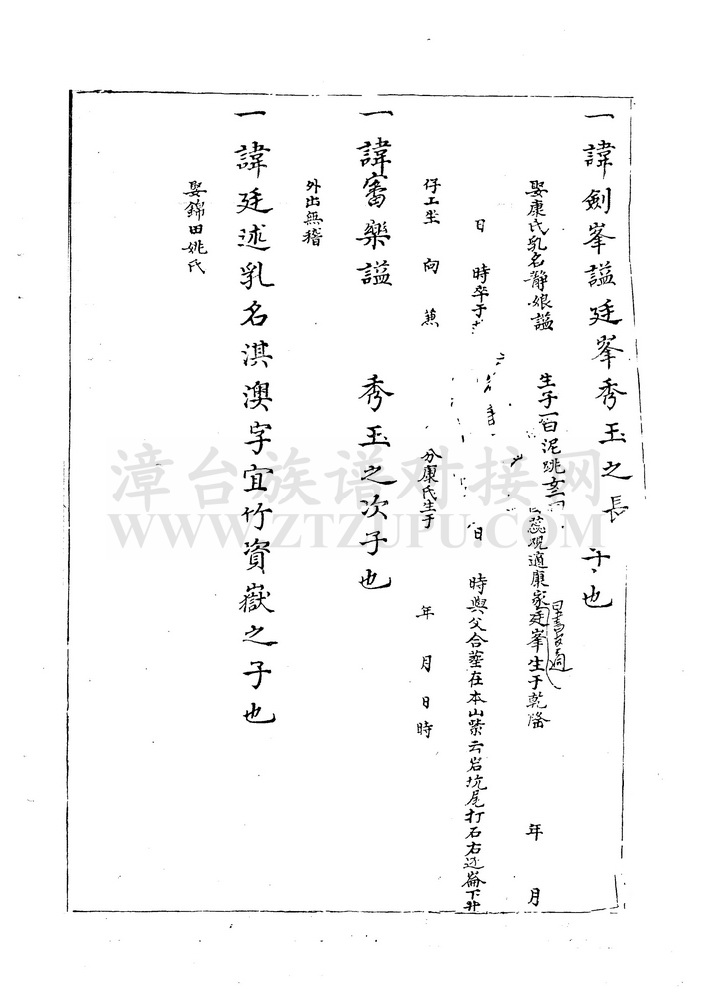 一諱劍峯謚廷峯秀玉之長子也
娶康氏乳名靜娘謚 生子一曰泥跳 蕊硯適康家廷峯生于乾隆 年 月
日 時卒于 日 時與父合塟在本山紫云岩坑尾打石右边崙下井
仔工坐 向 兼 分康氏生于 年 月 日 時
一諱審樂謚 秀玉之次子也
外出無稽
一諱廷述乳名淇澳字宜竹資嶽之子也
娶錦田姚氏
漳台族谱对接网
WWW.ZTZUPU.COM